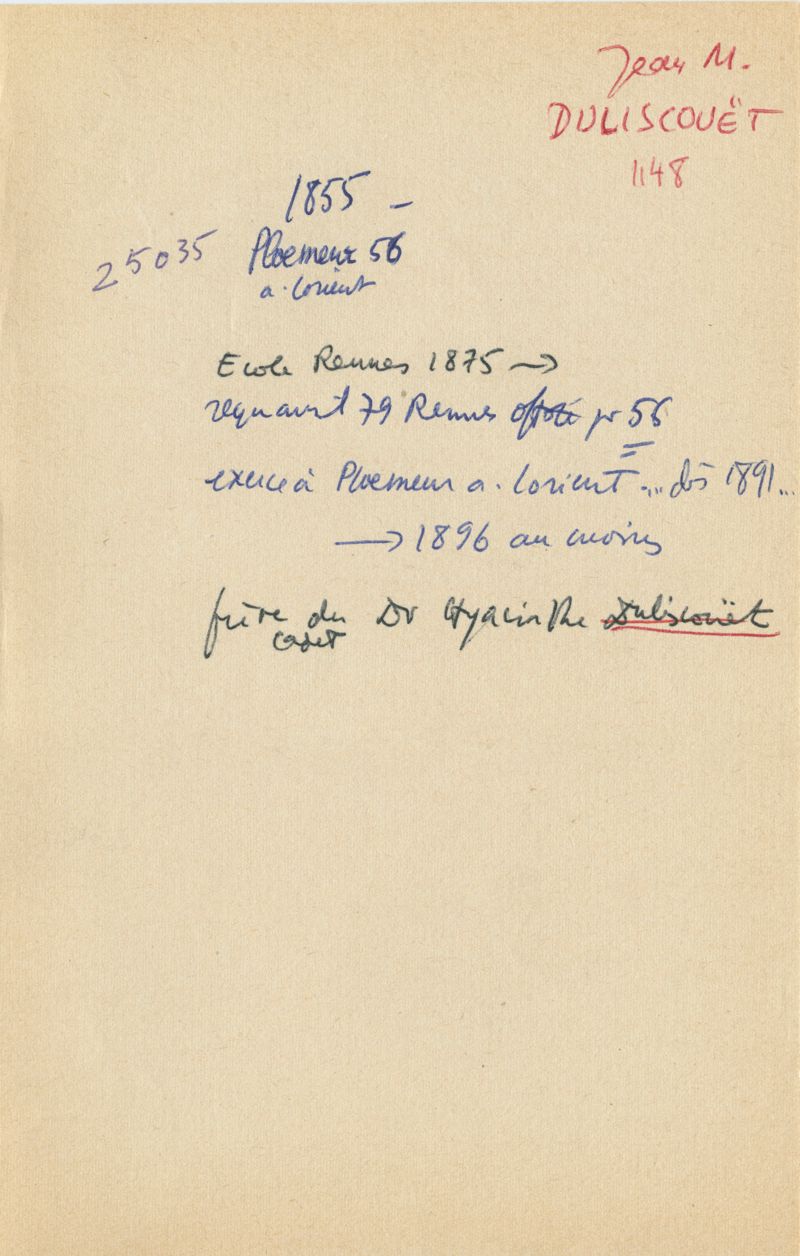 Jean M.
DULISCOUËT
1148
1855 -
25035 Ploemeur 56
a. Lorient
Ecole Rennes 1875 →
reçu avril 79 Rennes pr 56
exerce à Ploemeur a. Lorient ... dès 1891...
→ 1896 au moins
frère du Dr Hyacinthe Duliscouët
cadet